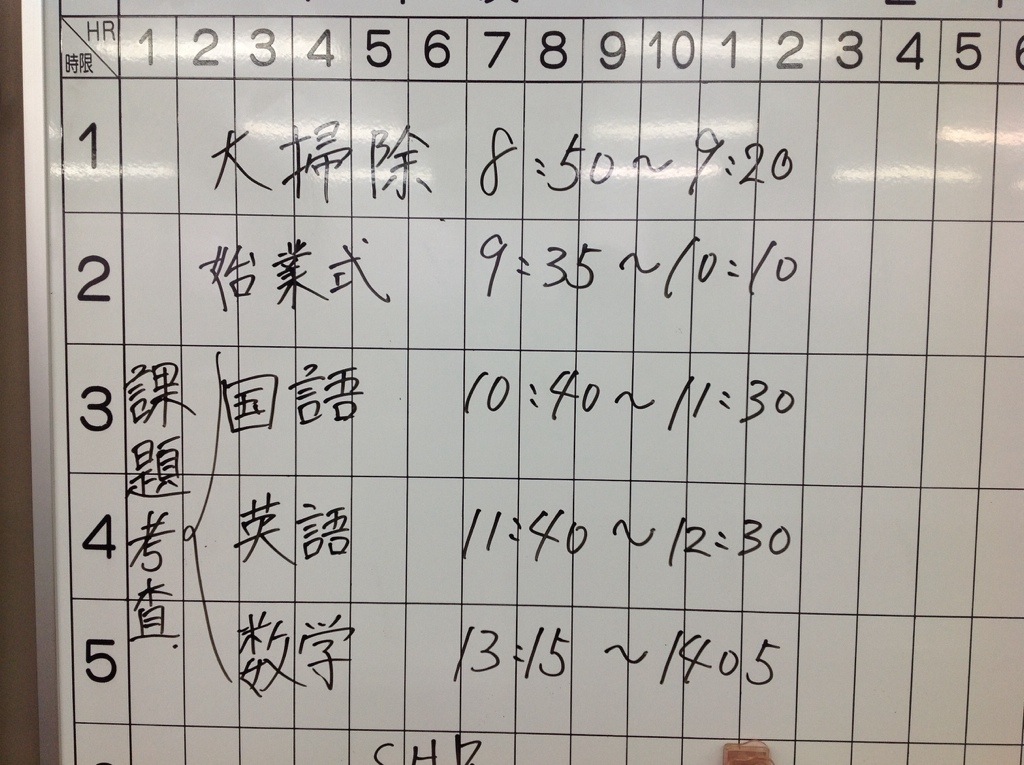 HR 1 2 3 4 5 6 7 8 9 10 1 2 3 4 5
時限
1 大掃除 8:50〜9:20
2 始業式 9:35〜10:10
課題考査
3 国語 10:40〜11:30
4 英語 11:40〜12:30
5 数学 13:15〜1405
SHR